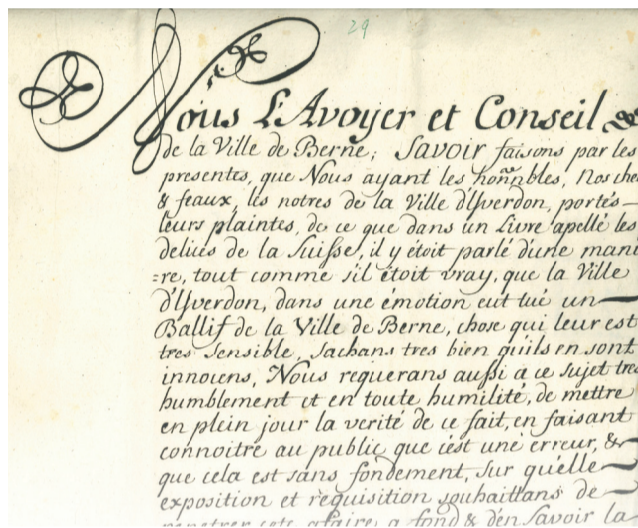 29
Nous L'Avoyer et Conseil &
de la Ville de Berne; Savoir faisons par les
presentes, que Nous ayant les honnbles, Nos che
& feaux, les notres de la Ville d'Yverdon, portés
leurs plaintes, de ce que dans un Livre apellé les
delices de la Suisse, il y étoit parlé d'une mani
=re, tout comme s'il étoit vray, que la Ville
d'Yverdon, dans une émotion eut tué un
Ballif de la Ville de Berne, chose qui leur est
tres sensible, sachans tres bien qu'ils en sont
innocens, Nous requerans aussi a ce sujet tres
humblement et en toute humilité, de mettre
en plein jour la verité de ce fait, en faisant
connoitre au public que c'est une erreur, &
que cela est sans fondement, sur qu'elle
exposition et requisition souhaittans de
penetrer cete afaire a fond & d'en savoir la